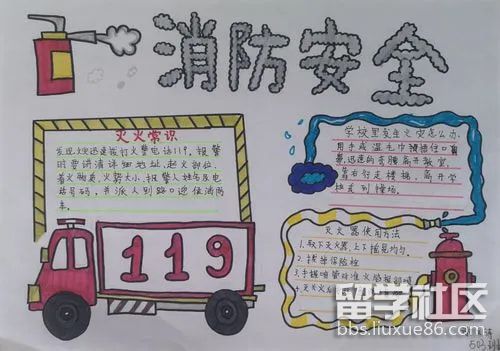 消防安全
灭火常识
发现火灾迅速拨打火警电话119,报警
时要讲清详细地址,起火部位,
着火物质,火势大小,报警人姓名及电
话号码,并派人到路口迎候消防
车。
119
学校里发生火灾怎么办
用手或湿毛巾捂住口鼻
靠右行走楼梯,离开学
灭火器使用方法
1.取下灭火器,上下摇晃均匀。
2.拔掉保险栓
留学社区
bbs.liuxue86.com